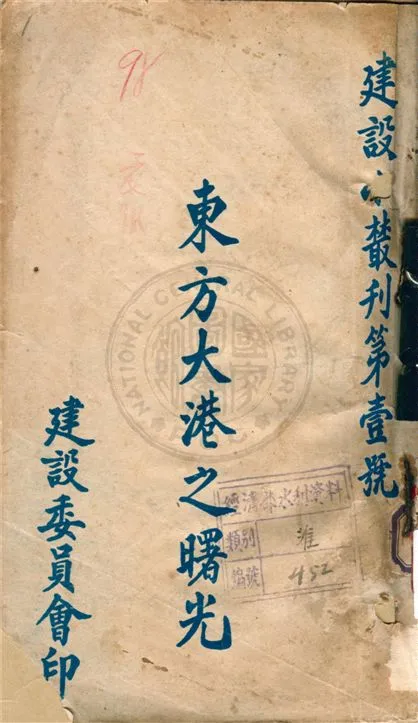 建設 叢刊第壹號
東方大港之曙光
建設委員會印
98
NATIONAL CENTRAL LIBRARY
國家圖書館
經濟部水利資料
類別 淮
編號 452